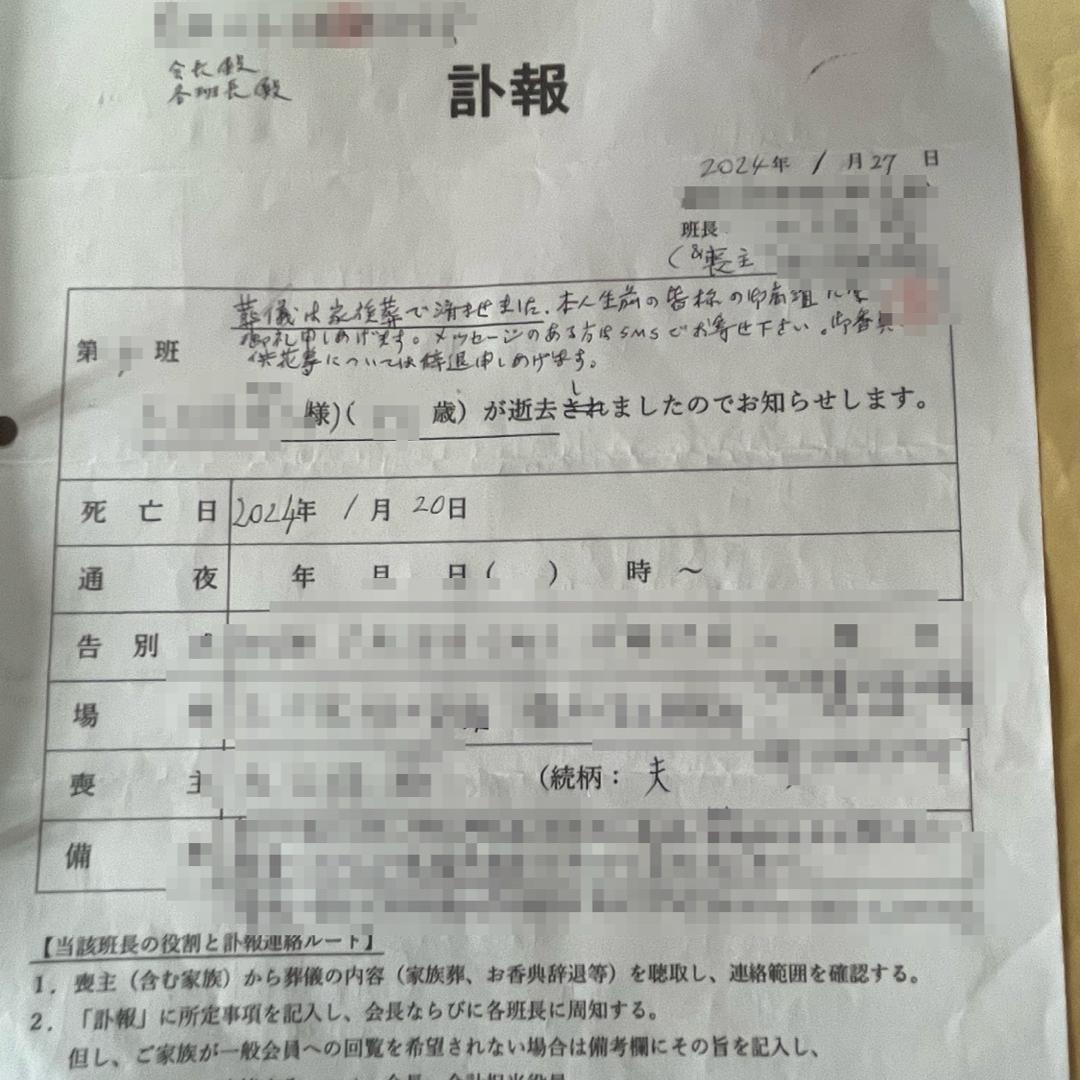 会長殿
各班長殿
訃報
2024年 1月27日
班長
(&喪主
葬儀は家族葬で済ませました。本人生前の皆様の御厚誼に
御礼申しあげます。メッセージのある方はSMSでお寄せ下さい。御香典
供花等については辞退申しあげます。
第 班
し
様)( 歳)が逝去されましたのでお知らせします。
死亡日 2024年 1月 20日
通夜 年 月 日( ) 時 ～
告別
場
喪主 (続柄： 夫
備
【当該班長の役割と訃報連絡ルート】
1. 喪主（含む家族）から葬儀の内容（家族葬、お香典辞退等）を聴取し、連絡範囲を確認する。
2. 「訃報」に所定事項を記入し、会長ならびに各班長に周知する。
但し、ご家族が一般会員への回覧を希望されない場合は備考欄にその旨を記入し、